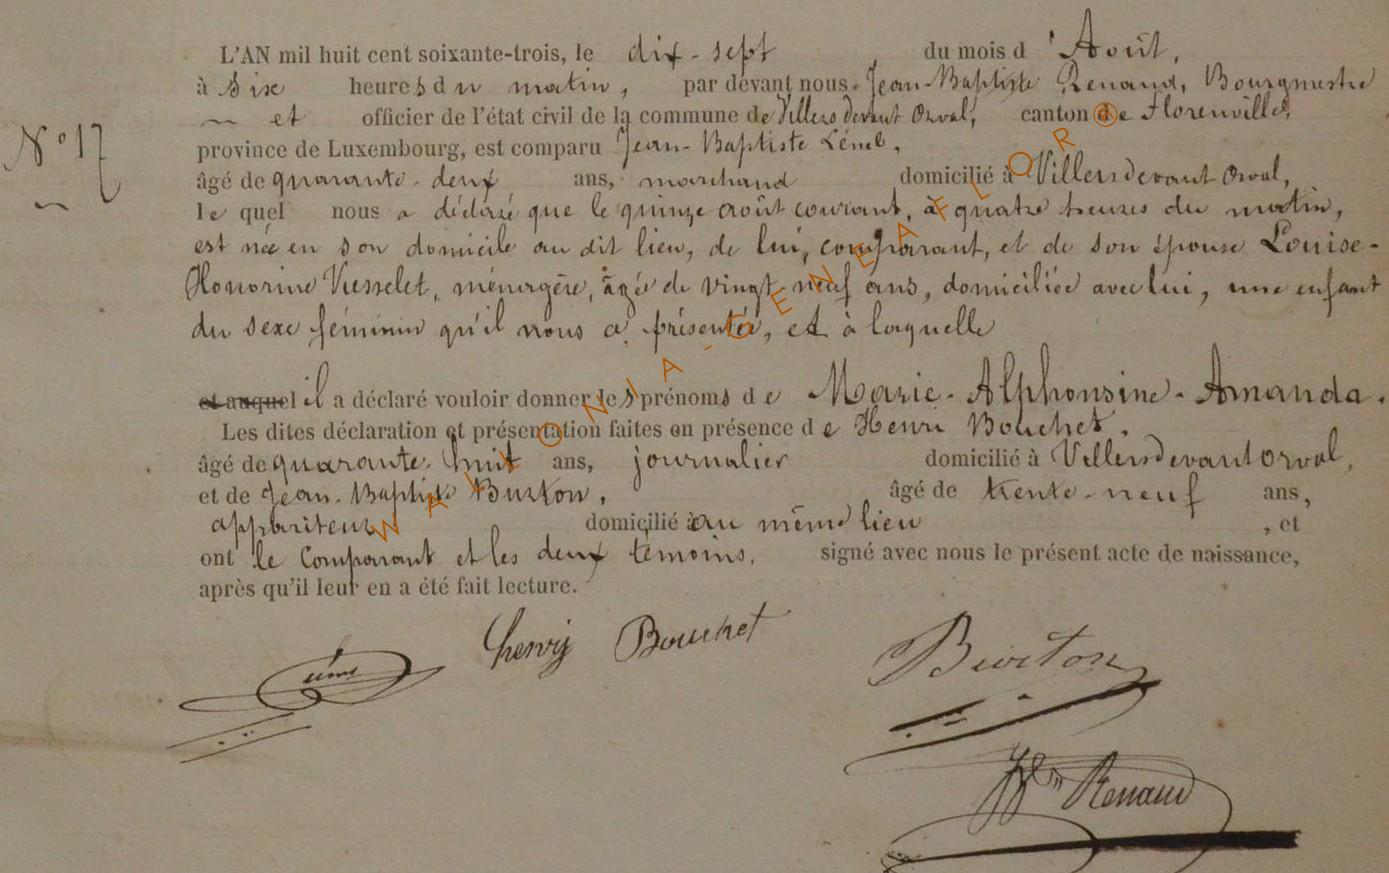 L'AN mil huit cent soixante-trois, le dix-sept du mois d'Août,
à six heures du matin, par devant nous Jean-Baptiste Renaud, Bourgmestre
et officier de l'état civil de la commune de Villers devant Orval, canton de Florenville,
N° 17
province de Luxembourg, est comparu Jean-Baptiste
âgé de quarante-deux ans, marchand domicilié à Villers devant Orval,
lequel nous a déclaré que le quinze août courant, à quatre heures du matin,
est née en son domicile au dit lieu, de lui, comparant, et de son épouse Louise-
Honorine ménagère, âgée de vingt-neuf ans, domiciliée avec lui, une enfant
du sexe féminin qu'il nous a présentée, et à laquelle
et auquel il a déclaré vouloir donner les prénoms de Marie-Alphonsine-Amanda.
Les dites déclaration et présentation faites en présence de Henri Bouchet,
âgé de quarante-huit ans, journalier domicilié à Villers devant Orval,
et de Jean-Baptiste Burton, âgé de trente-neuf ans,
appariteur domicilié au même lieu, et
ont le Comparant et les deux témoins, signé avec nous le présent acte de naissance,
après qu'il leur en a été fait lecture.
Henry Bouchet Burton
Renaud
WALLONIA-GENEAFLOR